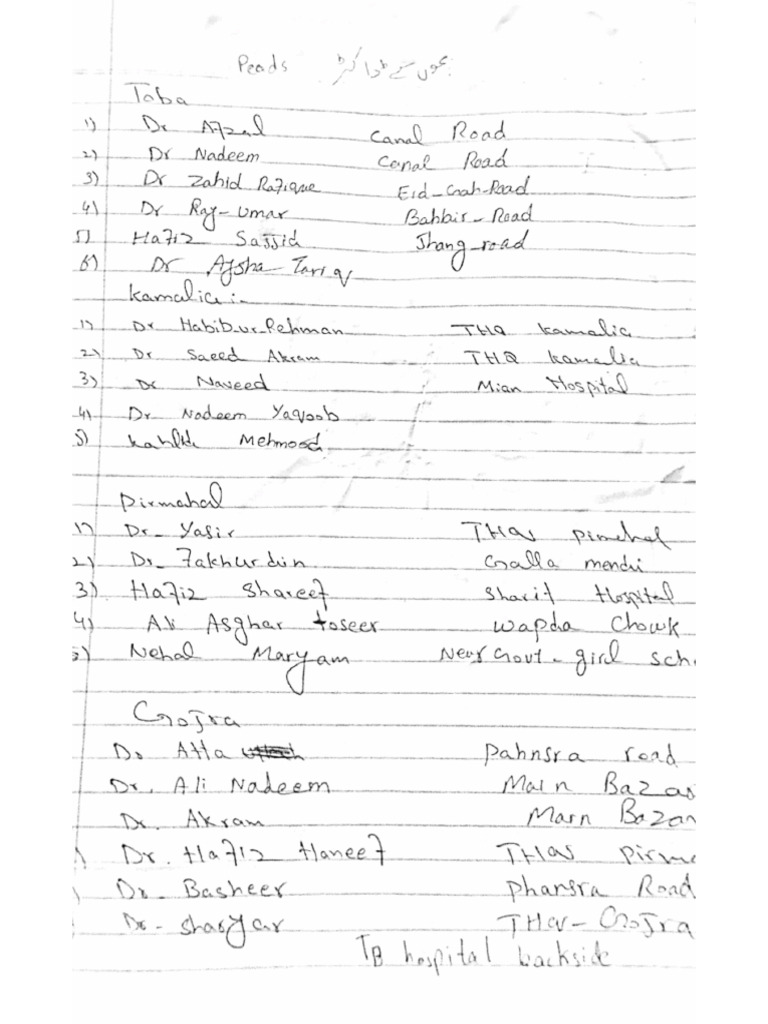 Peads بچوں کے ڈاکٹر
Toba
1) Dr Afzal Canal Road
2) Dr Nadeem Canal Road
3) Dr Zahid Rafique Eid-Gah-Road
4) Dr Ray-Umar Road
5) Hafiz Sajjid Jhang-road
6) Dr Aysha Tariq
Kamalia:-
1) Dr Habib-ur-Rehman THQ Kamalia
2) Dr Saeed Akram THQ Kamalia
3) Dr Naveed Mian Hospital
4) Dr Nadeem Yaqoob
5) Mehmood
Pirmahal
1) Dr-Yasir THQ pirmehal
2) Dr-Fakhurdin Galla mendi
3) Hafiz Shareef Sharif Hospital
4) Ali Asghar toseer Wapda Chowk
5) Nehal Maryam Near Govt-girl sch
Gojra
Dr Atta pahnsra road
Dr. Ali Nadeem Main Bazar
Dr. Akram Main Bazar
) Dr. Hafiz Haneef THQ pirme
) Dr. Basheer phansra Road
Dr-sharyar THQ-Gojra
TB hospital backside